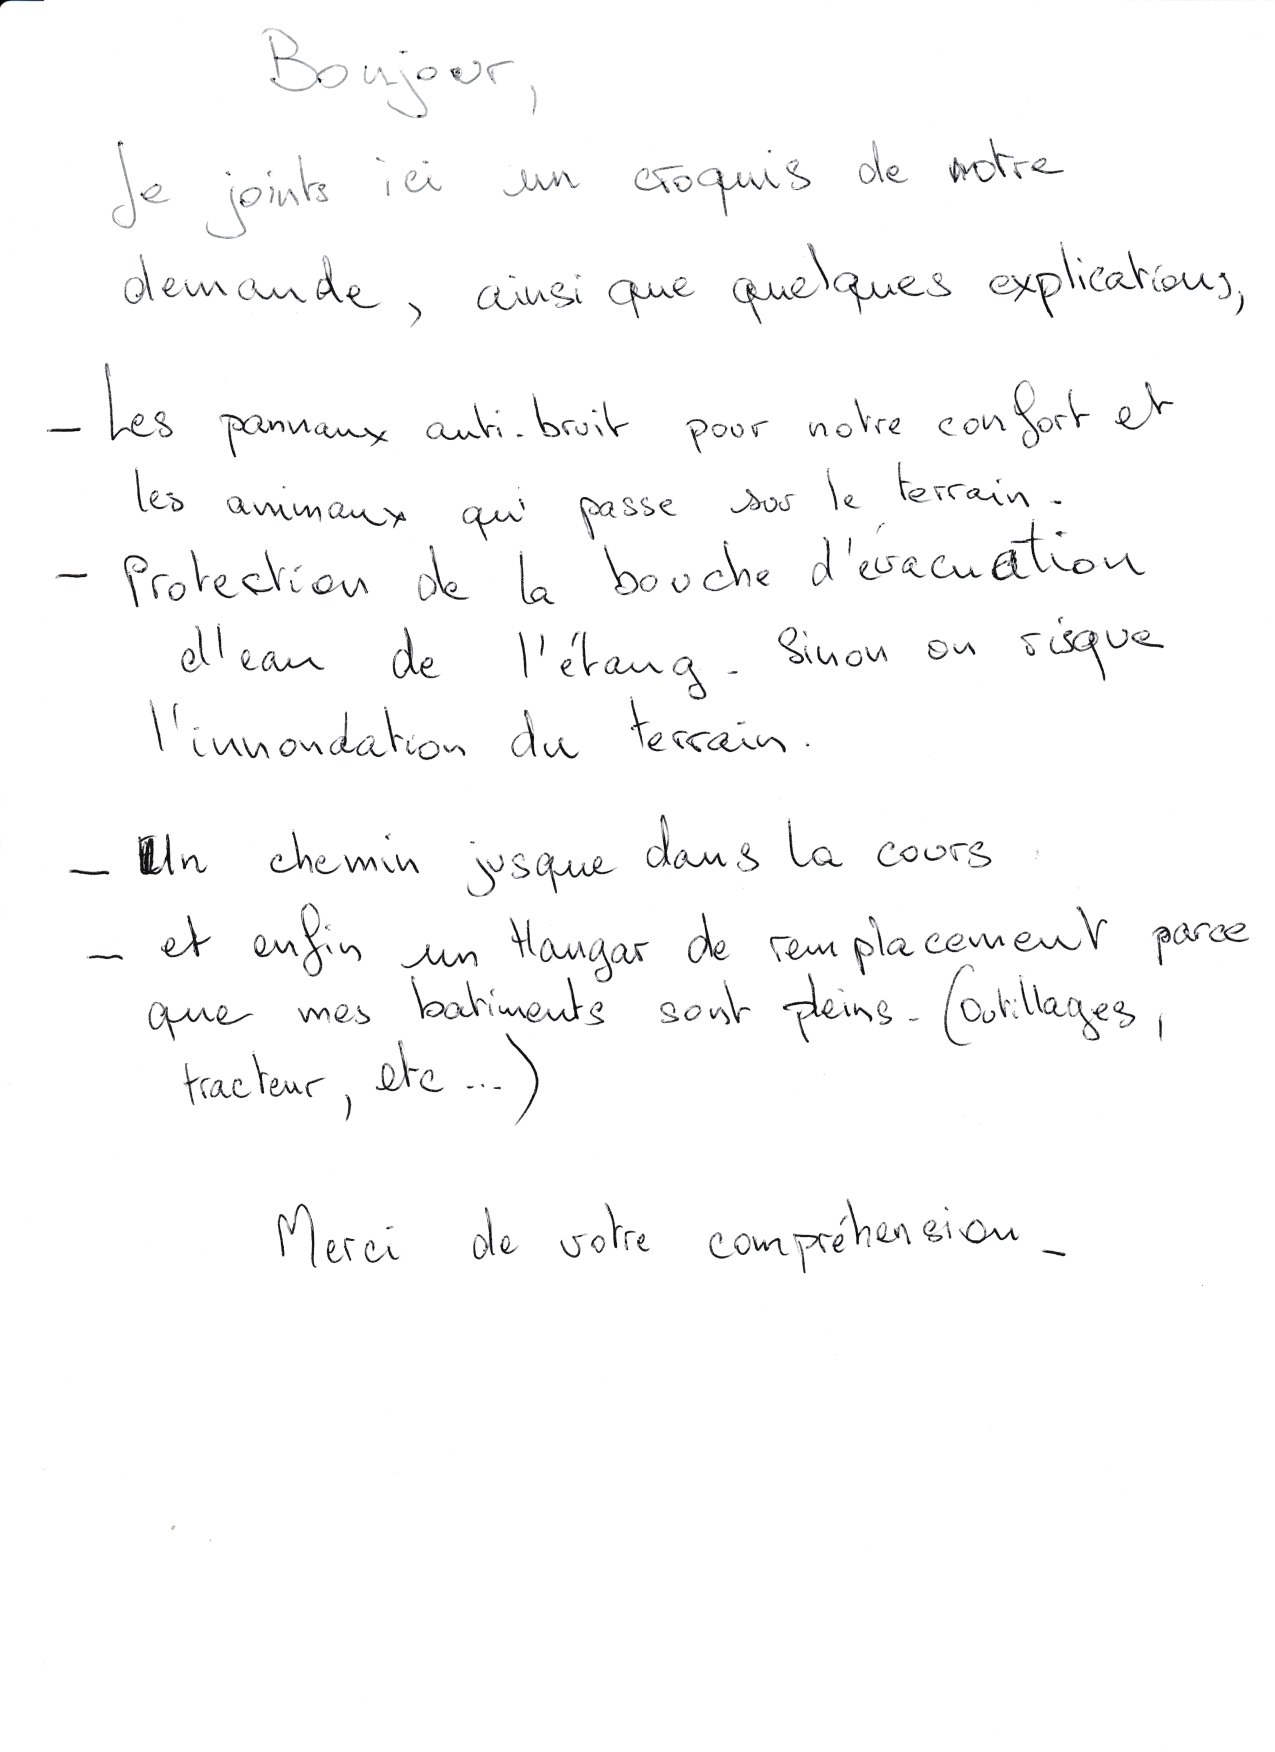 Bonjour,
Je joints ici un croquis de notre
demande, ainsi que quelques explications,
- Les pannaux anti-bruit pour notre confort et
les animaux qui passe sur le terrain.
- Protection de la bouche d'évacuation
d'eau de l'étang. Sinon on risque
l'innondation du terrain.
- Un chemin jusque dans la cours
- et enfin un Hangar de remplacement parce
que mes batiments sont pleins. (Outillages,
tracteur, etc ...)
Merci de votre compréhension.